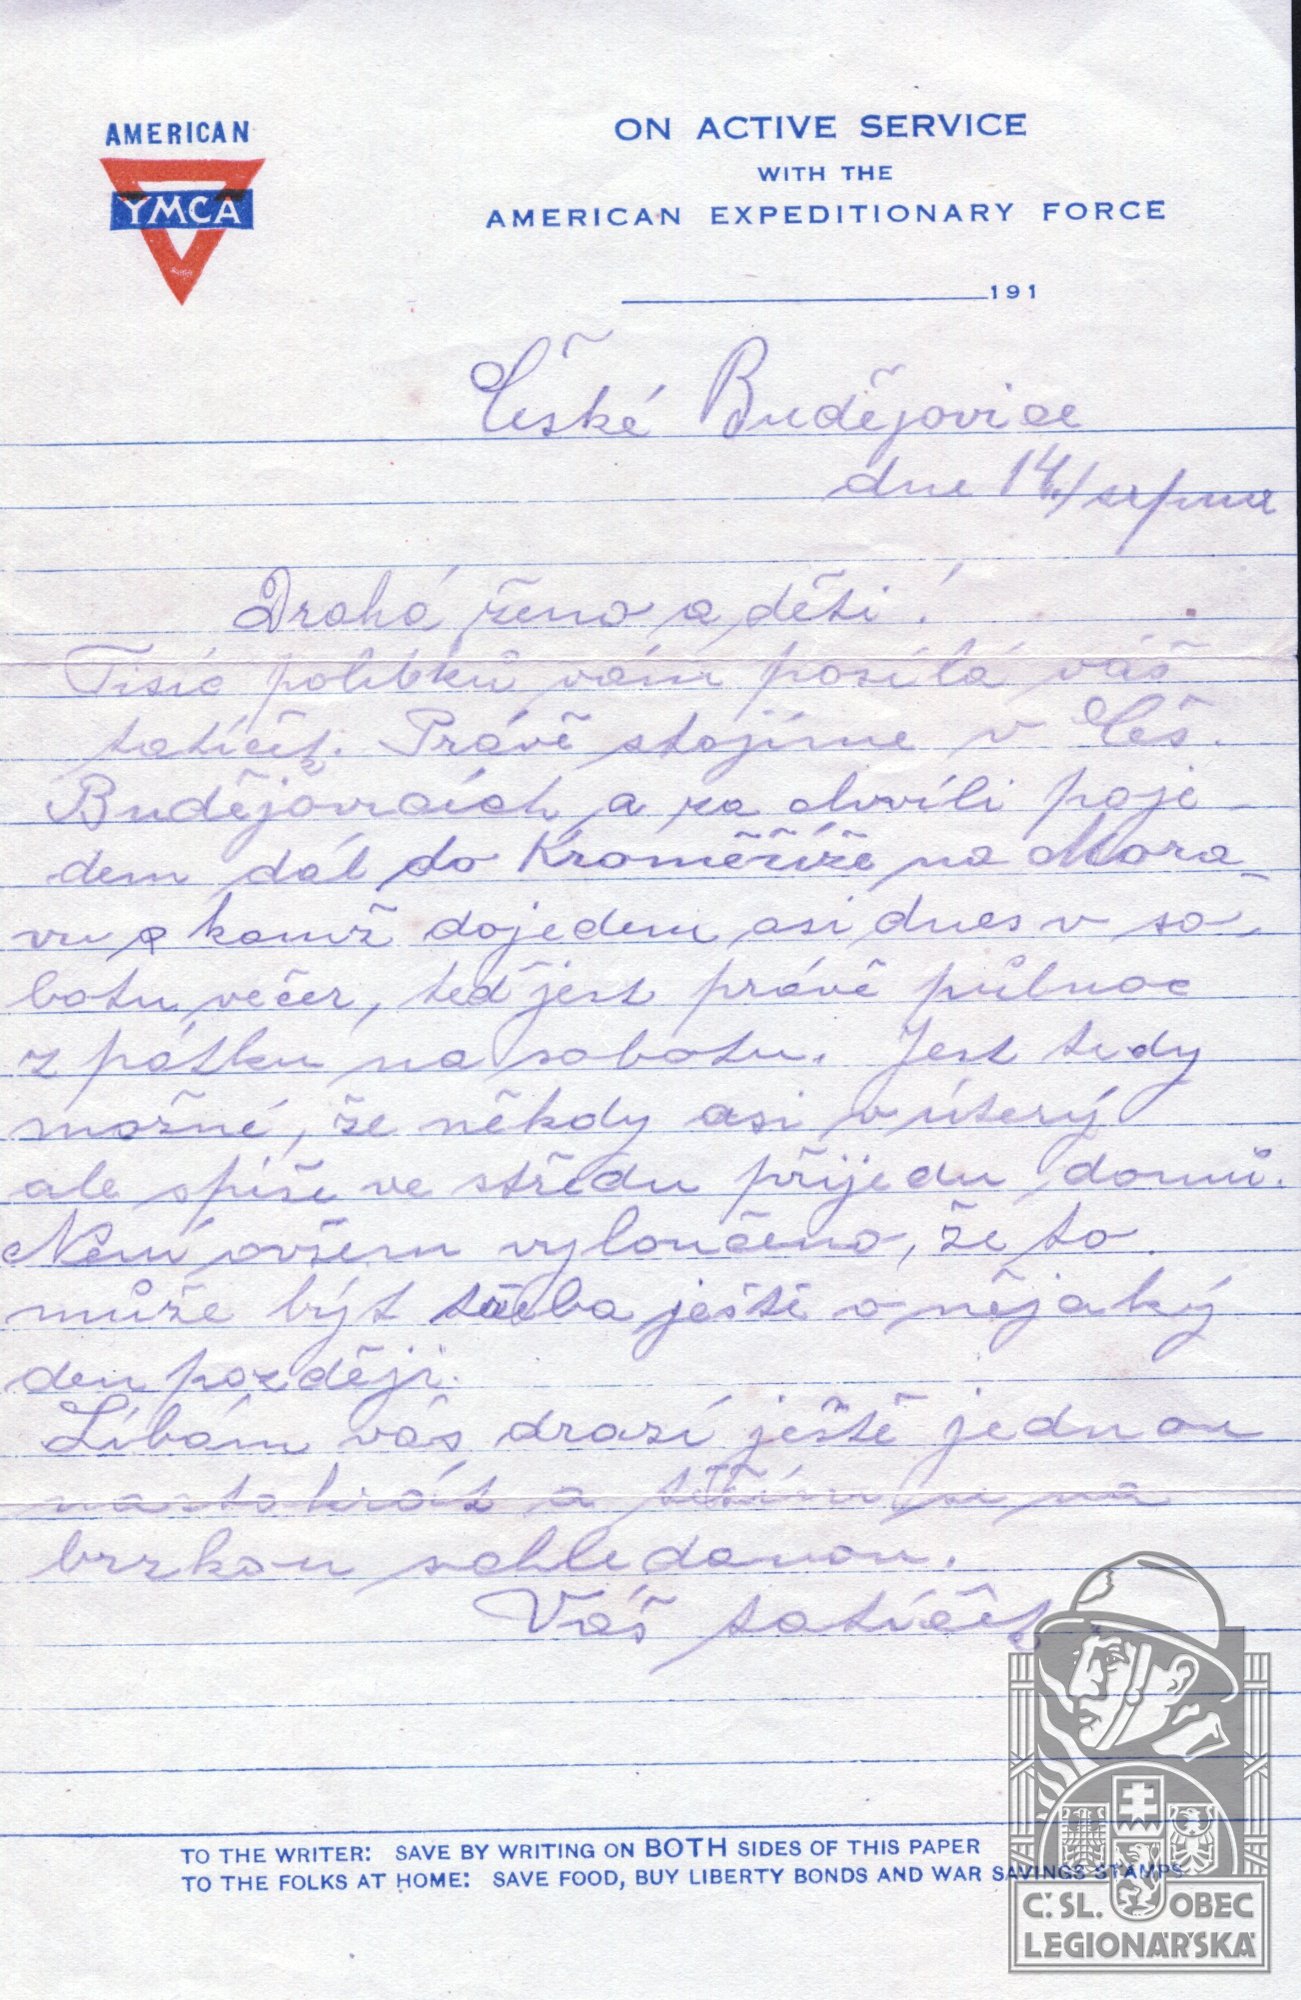 AMERICAN
YMCA
ON ACTIVE SERVICE
WITH THE
AMERICAN EXPEDITIONARY FORCE
191
České Budějovice
dne 14./srpna
Drahá ženo a děti!
Tisíc polibků vám posílá váš
tatíček. Právě stojíme v Čes.
Budějovicích a za chvíli poje-
dem dál do Kroměříže na Mora-
vu, kamž dojedem asi dnes v so-
botu večer, teď jest právě půlnoc
z pátku na sobotu. Jest tedy
možné, že někdy asi v úterý
ale spíše ve středu přijedu domů.
Není ovšem vyloučeno, že to
může být třeba ještě o nějaký
den později.
Líbám vás drazí ještě jednou
nastokrát a těším se na
brzkou schledanou.
Váš tatíček
TO THE WRITER: SAVE BY WRITING ON BOTH SIDES OF THIS PAPER
TO THE FOLKS AT HOME: SAVE FOOD, BUY LIBERTY BONDS AND WAR SAVINGS STAMPS
Č. SL. OBEC
LEGIONÁŘSKÁ